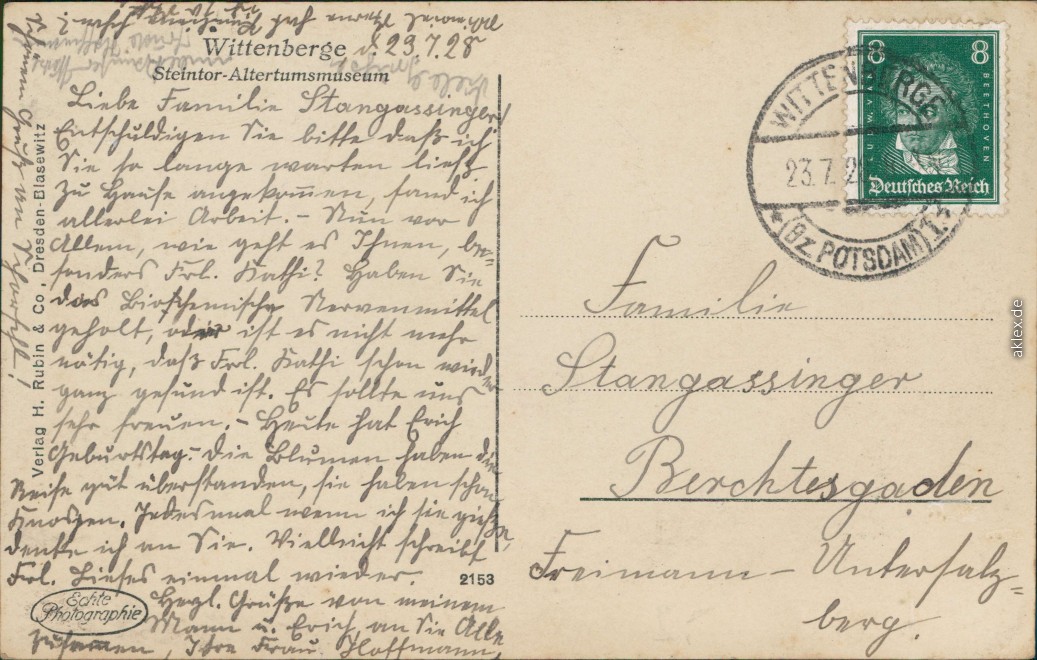 Wittenberge
d. 23.7.28
Steintor-Altertumsmuseum
Liebe Familie Stangassinger!
Entschuldigen Sie bitte daß ich
Sie so lange warten ließ.
Zu Hause angekommen, fand ich
allerlei Arbeit. – Nun vor
Allem, wie geht es Ihnen, be=
sonders Frl. Kathi? Haben Sie
das Biochemische Nervenmittel
geholt, oder ist es nicht mehr
nötig, daß Frl. Kathi schon wieder
ganz gesund ist. Es sollte uns
sehr freuen. – Heute hat Erich
Geburtstag. – Die Blumen haben die
Reise gut überstanden, sie haben schon
Knospen. Jedesmal wenn ich sie gieße,
denke ich an Sie. Vielleicht schreibt
Frl. Lieses einmal wieder.
Hrzl. Grüße von meinem
Mann u. Erich an Sie Alle
zusammen, Ihre Frau Hoffmann,
Verlag H. Rubin & Co., Dresden-Blasewitz
2153
Echte
Photographie
WITTENBERGE
23.7.2
* (Bz. POTSDAM) 1
8 8
LUDW. VAN BEETHOVEN
Deutsches Reich
Familie
Stangassinger
Berchtesgaden
Freimann – Untersalz=
berg.
aklex.de